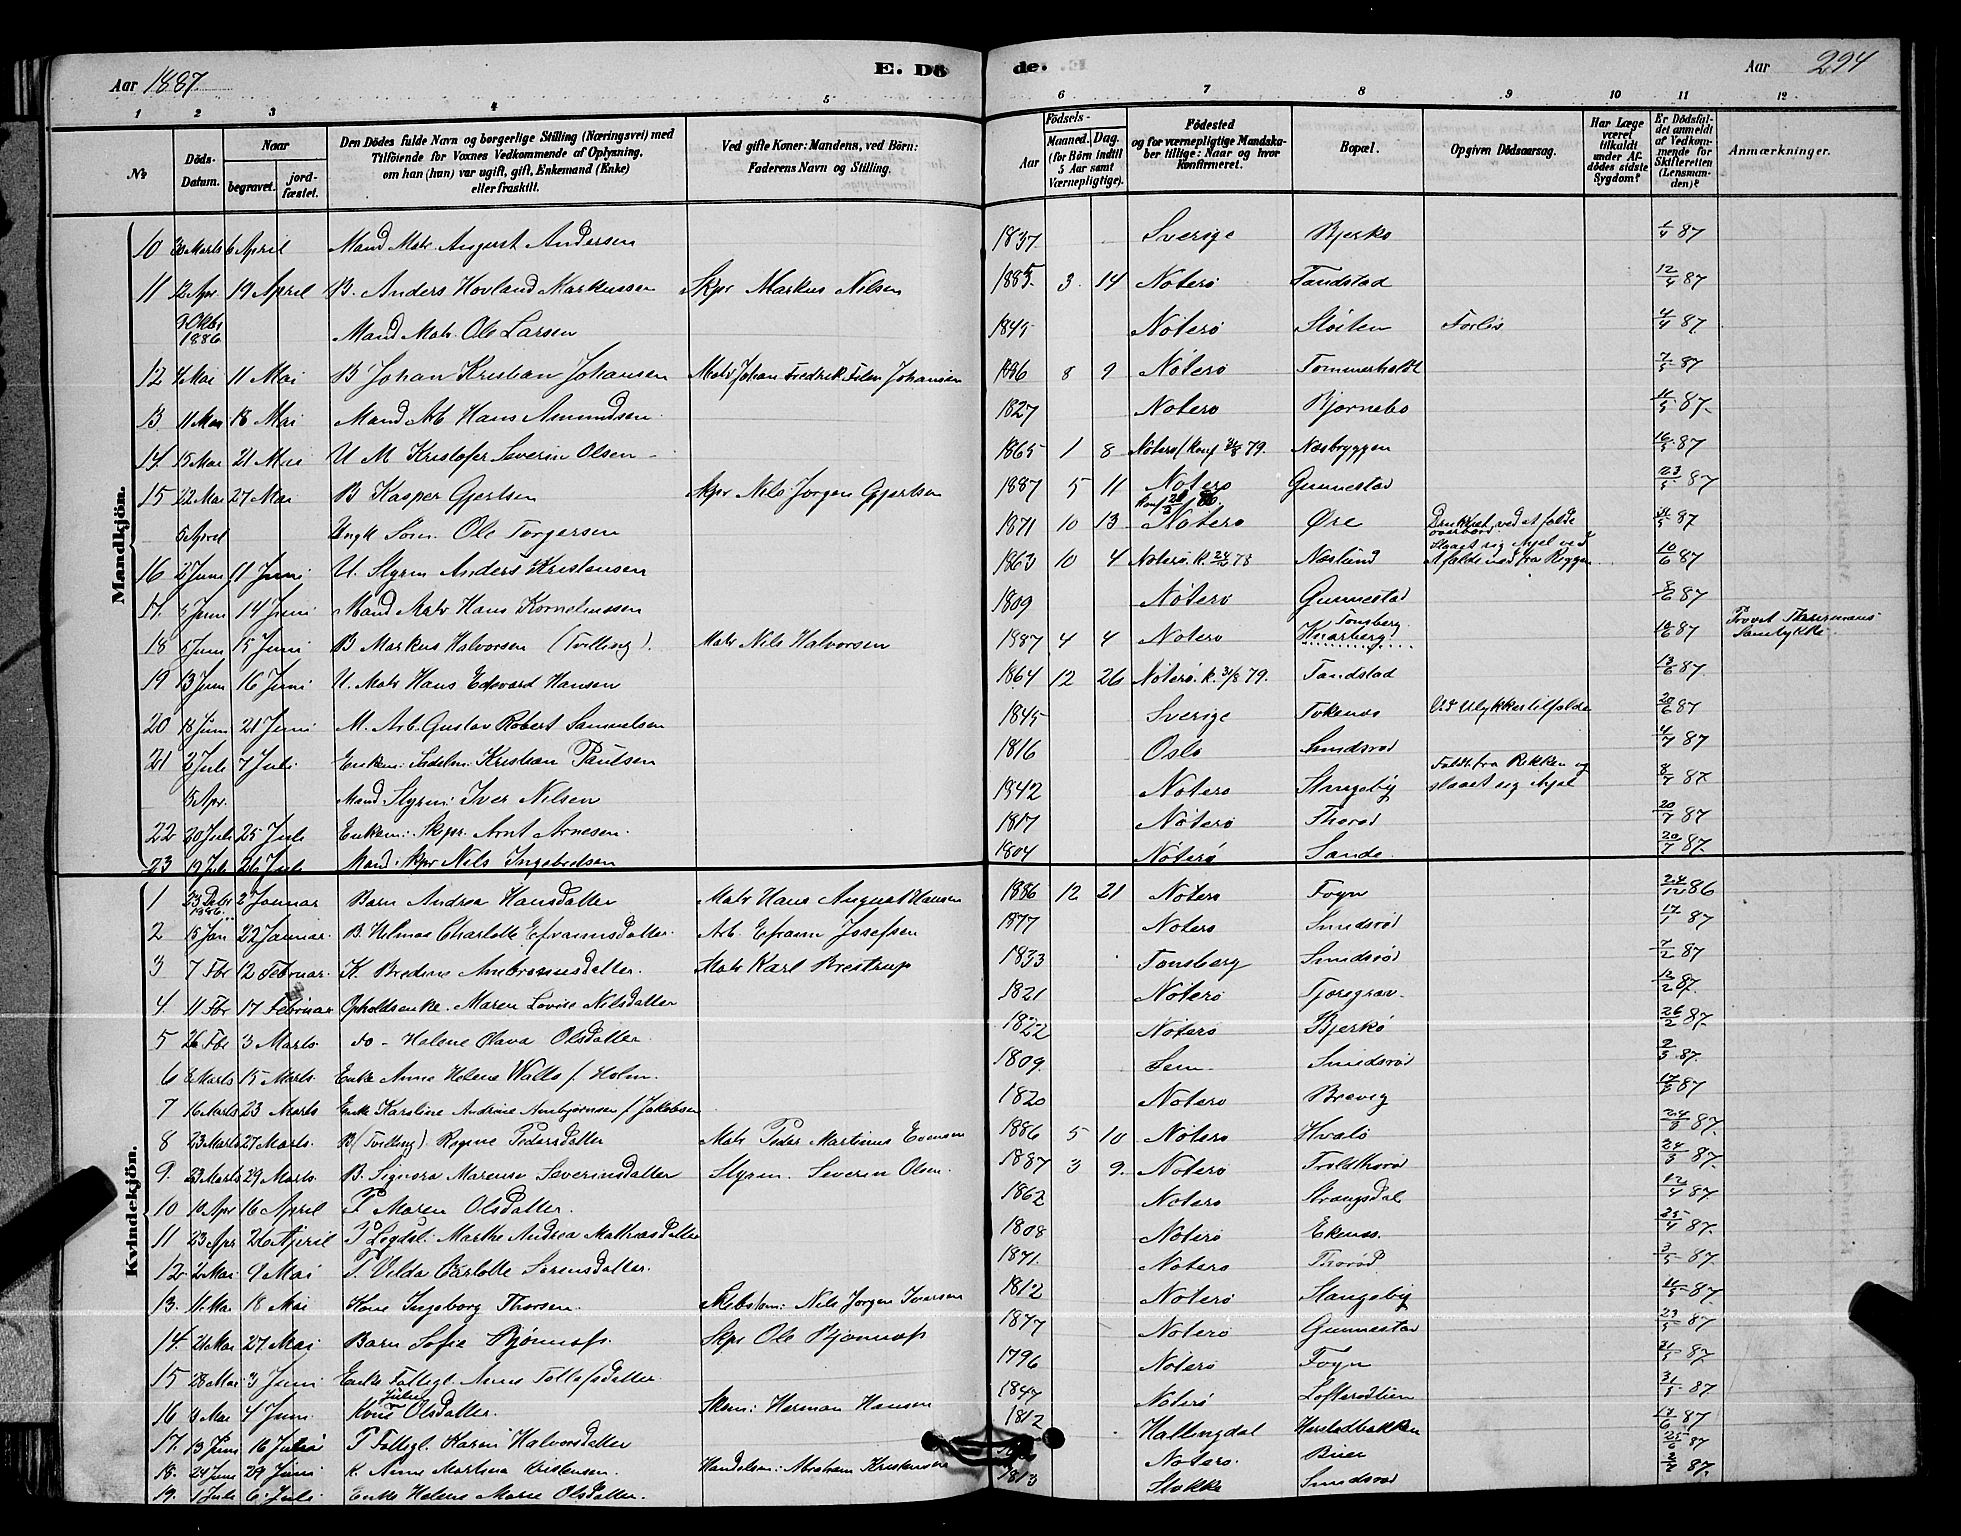 Aar 1887. E. Dö de. Aar 294
1 2 3 4 5 6 7 8 9 10 11 12
№ Döds-Datum. Naar begravet. jord-fæstet. Den Dödes fulde Navn og borgerlige Stilling (Næringsvei) med Tilföiende for Voxnes Vedkommende af Oplysning, om han (hun) var ugift, gift, Enkemand (Enke) eller fraskilt. Ved gifte Koner: Mandens, ved Börn: Faderens Navn og Stilling. Födsels- Aar Maaned. Dag. (for Börn indtil 5 Aar samt Værnepligtige). Födested og for værnepligtige Mandskaber tillige: Naar og hvor Konfirmeret. Bopæl. Opgiven Dödsaarsag. Har Læge været tilkaldt under Afdödes sidste Sygdom? Er Dödsfaldet anmeldt af Vedkommende for Skifteretten (Lensmanden)? Anmærkninger.
Mandkjön.
10 Marts 6 April Mand Matr. August Andersen 1837 Sverige Bjerko 1/4 87
11 12 Apr. 19 April B. Anders Hovland Markussen Skpr Markus Nilsen 1885 3 14 Noterø Tandstad 12/4 87
Oktbr 1886 Mand Matr. Ole Larsen 1845 Nøterø Stoiten Forlis 4/4 87
12 Mai 11 Mai B Johan Kristian Johansen Matr Johan Fredrik Johansen 1886 8 9 Nøterø Tommerholdt 7/5 87
13 11 Mai 18 Mai Mand Arb Hans Amundsen 1827 Notero Bjornebo 87
14 15 Mai 21 Mai U M Kristofer Severin Olsen 1865 1 8 Notero Næsbryggen 16/5 87
15 22 Mai 27 Mai B Kasper Gjertsen Skpr Nils Jorgen Gjertsen 1887 5 11 Notero Gunnestad 23/5 87
5 April Ungk Som. Ole Torgersen 1871 10 13 Notero Øre Druknet ved at falde overbord 87
16 Juni 11 Juni U. Styrm Anders Kristensen 1863 10 4 Noterø. K. Næslund Slaaet sig ihjel ved 10/6 87
17. 5 Juni 14 Juni Mand Matr Hans Korneliussen 1809 Nøterø Gunnestad 8/6 87
18 5 Juni 15 Juni B Markus Halvorsen (Tvilling). Matr Nils Halvorsen 1887 4 4 Nøtero Tønsberg 87 Provst
19 13 Juni 16 Juni U. Matr Hans Edvard Hansen 1864 12 26 Nøterø. K. 31/8 79. Tandstad 13/6 87
20 18 Juni 21 Juni M. Arb. Gustav Robert Samuelsen 1845 Sverige Tokenes Ved Ulykkestilfælde 20/6 87
21 2 Juli 7 Juli Enkem. Kristian Paulsen 1816 Oslo Smidsrød 4/7 87
Apr. Mand Styrm: Iver Nilsen 1842 Notero Stangeby Faldt fra Rikken og slaaet sig ihjel 8/7 87
22 20 Juli 25 Juli Enkem: Skpr. Arnt Arnesen. 1817 Noterø Thorød 20/7 87
23 19 Juli 26 Juli Mand: Skpr Nils Ingebretsen 1804 Nøterø Sande. 20/7 87
Kvindekjön.
1 23 Decbr 1886 2 Januar Barn Andrea Hansdatter Matr Hans August Hansen 1886 12 21 Notero Foyn 24/12 86
2 15 Jan 22 Januar. B. Helmas Charlotte Efraimsdatter. Arb. Efraim Josefsen 1877 Nøtero Smidsrod 17/1 87
3 7 Fbr 12 Februar. K. Bredine Ambrosiusdatter. Matr Karl Brestrup 1833 Tonsberg Smidsrød 7/2 87
4. 11 Fbr 17 Februar Opholdsenke. Maren Lovise Nilsdatter 1821 Notero Tjoregrav 12/2 87.
5 26 Fbr 3 Marts. do - Helene Olava Olsdatter. 1822 Nøtero Bjerkø 26/2 87
6 Marts 15 Marts. Enke Anne Helene Walls f. Holm. 1809 Sem Smidsrød 87.
7 16 Marts 23 Marts Enke Karoline Andrine Arnbjørnsen f Jakobsen 1820 Notero Brevig 17/3 87
8 23 Marts 27 Marts. B (Tvilling) Regine Pedersdatter Matr Peder Martinus Evensen 1886 5 10 Noterø Hvalø 24/3 87.
9. 23 Marts 29 Marts. B. Signora Marense Severinsdatter Styrm. Severin Olsen. 1887 3 9. Notero Troldthorød 24/3 87.
10 10 Apr 16 April P Maren Olsdatter. 1862 Notero Strangsdal 12/4 87
11 23 Apr 26 April P Legdsl: Marthe Andrea Mathiasdatter 1808 Noterø Ekenes. 25/4 87.
12 2 Mai 9 Mai P. Velda Carlotte Sørensdatter. 1871. Notero Thorød 3/5 87
13. 11 Mai 18 Mai Kone Ingeborg Thorsen. Nils Jorgen Iversen 1812 Noterø Stangeby 87
14. 21 Mai 27 Mai Barn Sofie Bjønnæss Skpr Ole Bjonnæss 1877 Noterø Gunnestad 23/5 87
15 28 Mai 3 Juni Enke Fattigl. Anne Tollefsdatter. 1796 Nøterø Foyn 31/5 87
16 Mai 4 Juni. Kone Juline Olsdatter. Skom: Herman Hansen 1847 Nøterø Lofterødlien 31/5 87
17. 13 Juni 16 P Fattigl. Karni Halvorsdatter 1812 Hallingdal Herstadbakken 17/6 87
18. 24 Juni 29 Juni K. Anne Martina Kristensen. Handelsm: Abraham Kristensen Notero. Buer 25/6 87
19. 1 Juli 6. Juli. Enke Helene Marie Olsdatter. 1813 Stokke Smidsrød 87.